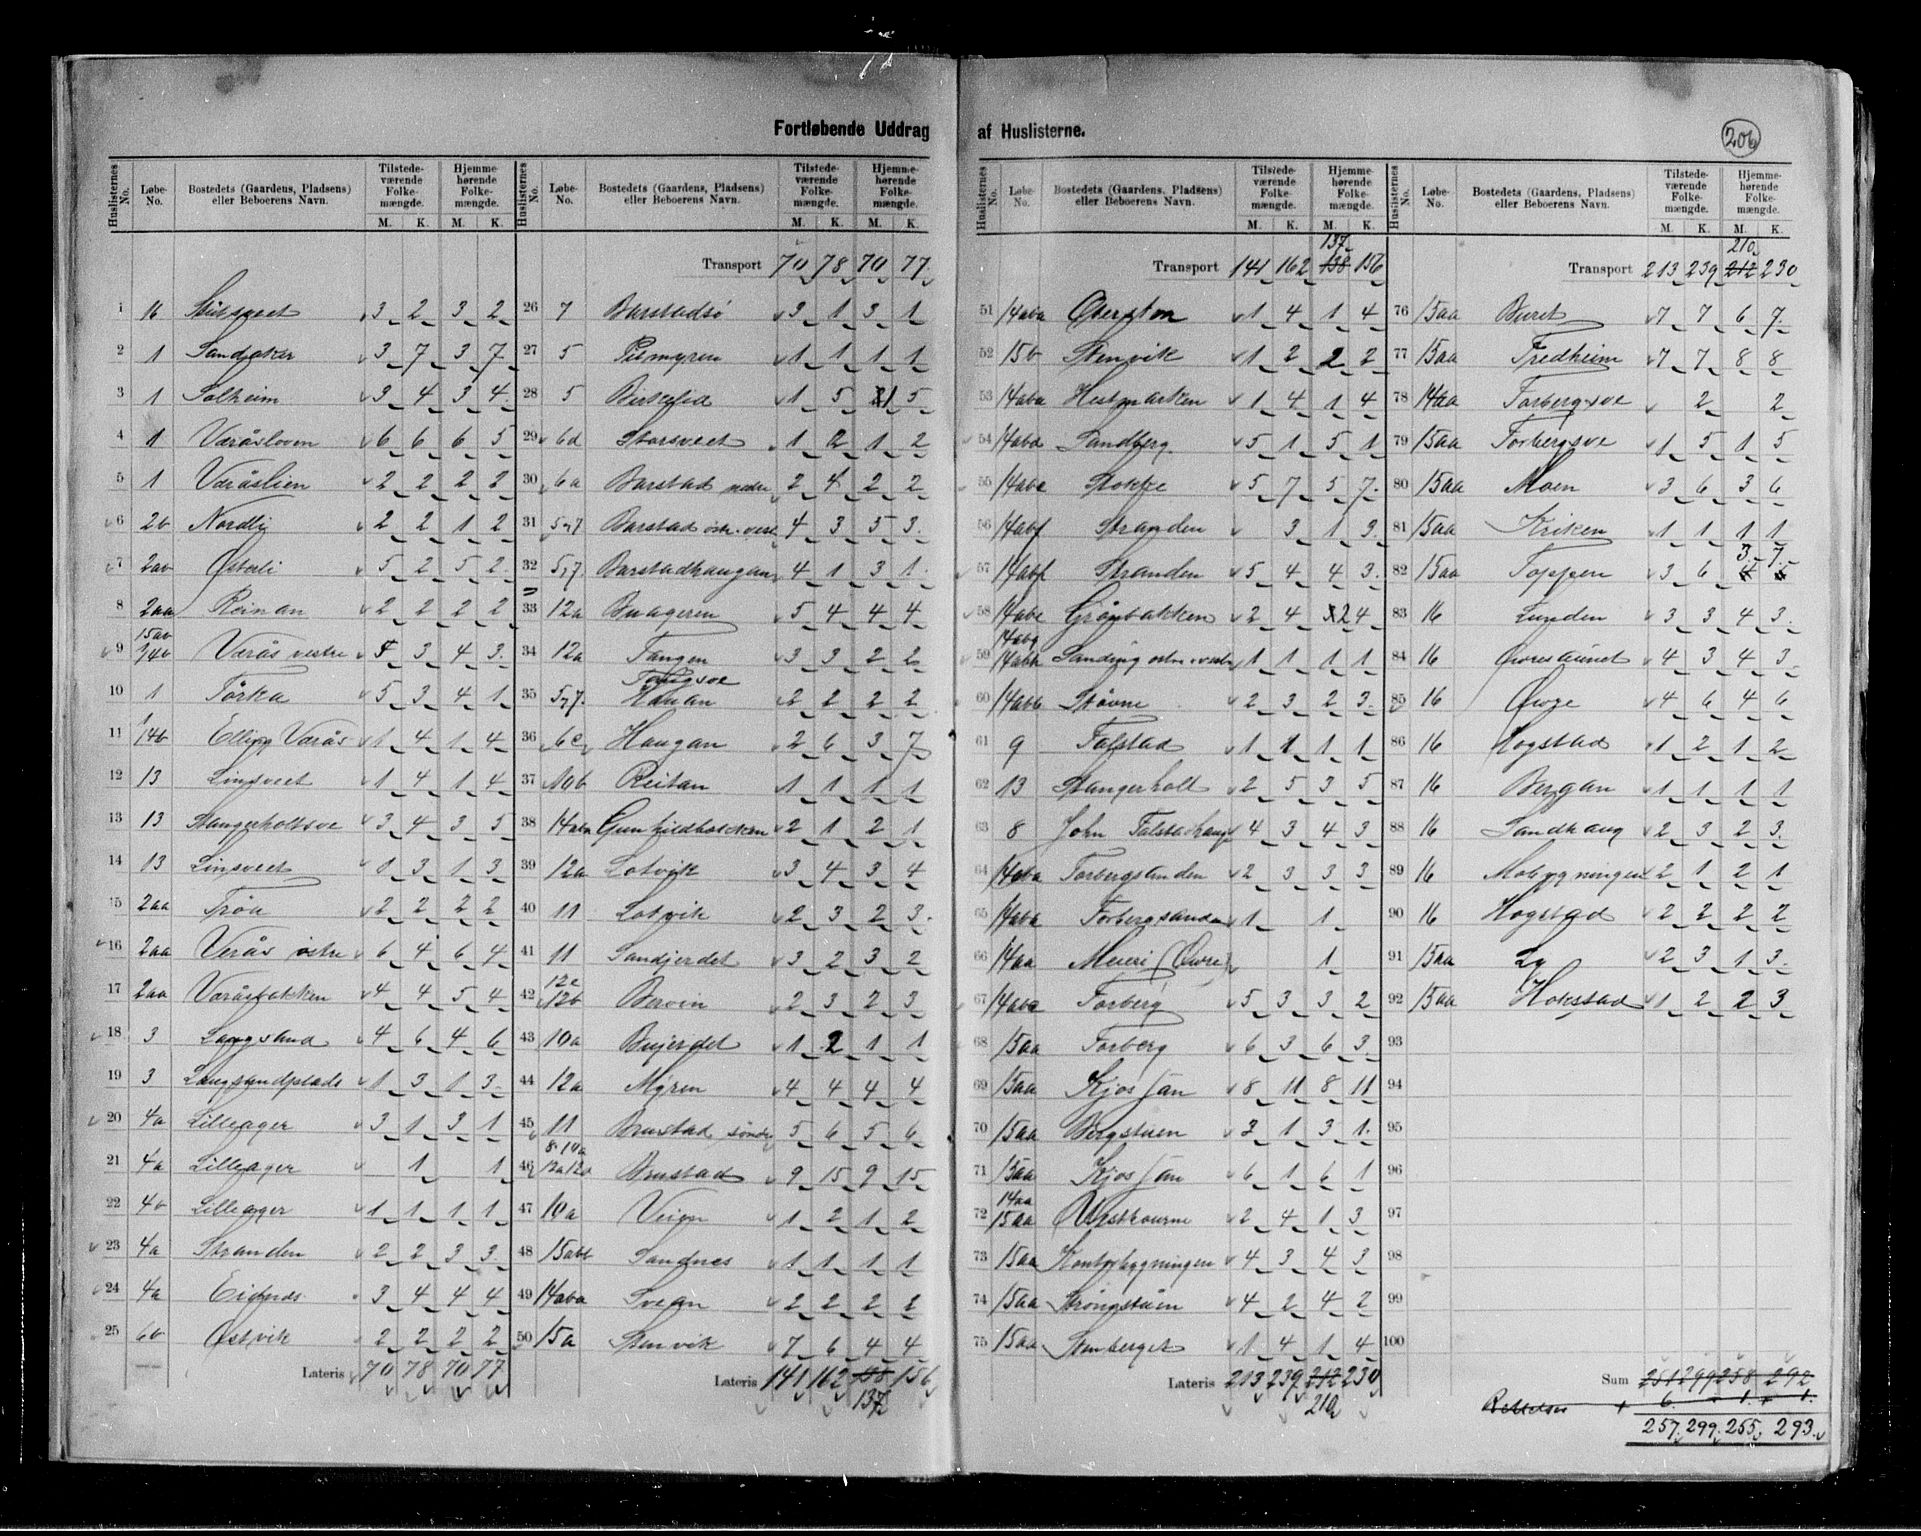 Fortløbende Uddrag af Huslisterne.
206
Huslisternes No. Løbe-No. Bostedets (Gaardens, Pladsens) eller Beboerens Navn. Tilstedeværende Folkemængde. M. K. Hjemmehørende Folkemængde. M. K.
1 16 3 2 3 2
2 1 Sandaker 3 7 3 7
3 1 Solheim 3 4 3 4
4 1 Voråsloven 6 6 6 5
5 1 Voråslien 2 2 2 2
6 2b Nordli 2 2 1 2
7 2ab Østerli 5 2 5 2
8 2aa Reinan 2 2 2 2
9 15ab 14b Vorås vestre 3 4 3
10 1 Tørka 5 3 4 1
11 1 14b Elling Vorås 1 4 1 4
12 13 Linsveet 1 4 1 4
13 13 Stangerholtsve 3 4 3 5
14 13 Linsveet 1 3 1 3
15 2aa Trøa 2 2 2 2
16 2aa Verås østre 6 4 6 4
17 2aa Voråsbakken 4 4 5 4
18 3 Langsand 4 6 4 6
19 3 Langsandplads 1 3 1 3
20 4a Lilleager 3 1 3 1
21 4a Lilleager 1 1
22 4b Lilleager 1 1 1 1
23 4a Stranden 2 2 3 3
24 4a Eidnes 3 4 4 4
25 6b Østvik 2 2 2 2
Lateris 70 78 70 77
Huslisternes No. Løbe-No. Bostedets (Gaardens, Pladsens) eller Beboerens Navn. Tilstedeværende Folkemængde. M. K. Hjemmehørende Folkemængde. M. K.
Transport 70 78 70 77
26 7 Barstadsø 3 1 3 1
27 5 Pilmyren 1 1 1 1
28 5 Birkelid 1 5 1 5
29 6d Storsveet 1 2 1 2
30 6a Barstad nedre 2 4 2 2
31 5,7 Barstad østr. vest 4 3 5 3
32 5,7. Barstadhaugan 4 1 3 1
33 12a Buageren 5 4 4 4
34 12a Tangen 3 3 2 2
35 5,7. Tangsve Hauan 2 2 2 2
36 6c Haugan 2 6 3 7
37 10b Reitan 1 1 1 1
38 14aba Gunhildbakken 2 1 2 1
39 12a Lotvik 3 4 3 4
40 11 Lotvik 2 3 2 3
41 11 Sandjerdet 3 2 3 2
42 12c 12b Bervin 2 3 2 3
43 10a Bujerdet 1 2 1 1
44 12a Myren 4 4 4 4
45 11 Brustad søndr 5 6 5 6
46 8.10a 12a 12d Brustad 9 15 9 15
47 10a Veign 1 2 1 2
48 15abb Sandnes 1 1 1 1
49 14aba Svean 2 2 2 2
50 15a Stenvik 7 6 4 4
Lateris 141 162 138 156
137
Huslisternes No. Løbe-No. Bostedets (Gaardens, Pladsens) eller Beboerens Navn. Tilstedeværende Folkemængde. M. K. Hjemmehørende Folkemængde. M. K.
137
Transport 141 162 138 156
51 14aba 1 4 1 4
52 15b Stenvik 1 2 2 2
53 14aba Hestmarken 1 4 1 4
54 14abd Sandberg 5 1 5 1
55 14aba Stokke 5 7 5 7
56 14abf Stranden 3 1 3
57 14abf Stranden 5 4 4 3
58 14abe Grønbakken 2 4 2 4
59 14abg 14abh Sanding østre vestre 1 1 1 1
60 14abb Støvne 2 3 2 3
61 9 Falstad 1 1 1 1
62 13 Stangerholt 2 5 3 5
63 8 John Falstadhaug 4 3 4 3
64 14aba Forbergsanden 2 3 3 3
65 14aba Forbergsanden 1 1
66 14aa Meieri (Øvre) 1
67 14aba Forberg 5 3 3 2
68 15aa Forberg 6 3 6 3
69 15aa Kjos Jan 8 11 8 11
70 15aa Bergstuen 3 1 3 1
71 15aa Kjos Jan 6 1 6 1
72 14aa 15aa 2 4 1 3
73 15aa Kontorbygningen 4 3 4 3
74 15aa Strøngstuen 4 2 4 2
75 15aa Stenberget 1 4 1 4
Lateris 213 239 212 230
210
Huslisternes No. Løbe-No. Bostedets (Gaardens, Pladsens) eller Beboerens Navn. Tilstedeværende Folkemængde. M. K. Hjemmehørende Folkemængde. M. K.
210
Transport 213 239 212 230
76 15aa Buret 7 7 6 7
77 15aa Fredheim 7 7 8 8
78 14aa Forbergsve 2 2
79 15aa Forbergsve 1 5 1 5
80 15aa Moen 3 6 3 6
81 15aa Kriken 1 1 1 1
3 7
82 15aa Toppen 3 6 4
83 16 Lunden 3 3 4 3
84 16 Øvresaunet 4 3 4 3
85 16 Øvre 4 6 4 6
86 16 Hogstad 1 2 1 2
87 16 Bergan 1 1 1 1
88 16 Sandhaug 2 3 2 3
89 16 Mobygningen 2 1 2 1
90 16 Hogstad 2 2 2 2
91 15aa Ly 2 3 1 3
92 15aa Hokstad 1 2 2 3
93
94
95
96
97
98
99
100
Sum 251 299 258 292
Rettelser + 6 - 1 + 1
257 299 255 293